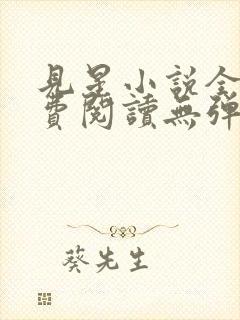 見星小說全
費閱讀無彈
葵先生